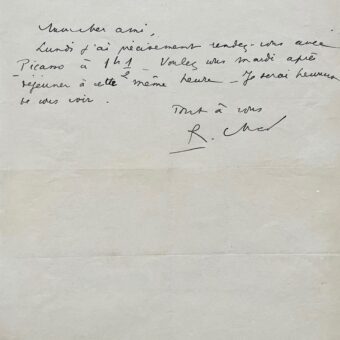 Mon cher ami,
Lundi j'ai précisément rendez-vous avec
Picasso à 1h 1/2. Voulez vous mardi après
déjeuner à cette même heure. Je serai heureux
de vous voir.
Tout à vous
R. Char